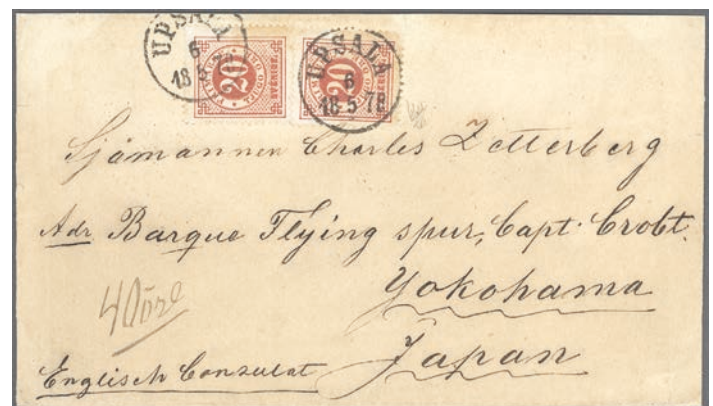 UPSALA
6
18 5 78
20
TJUGO
SVERIGE.
UPSALA
6
18 5 78
20
Sjömannen Charles Zetterberg
Adr Barque Flying spur, Capt. Croft.
Yokohama
40öre
Japan
Englisch Consulat